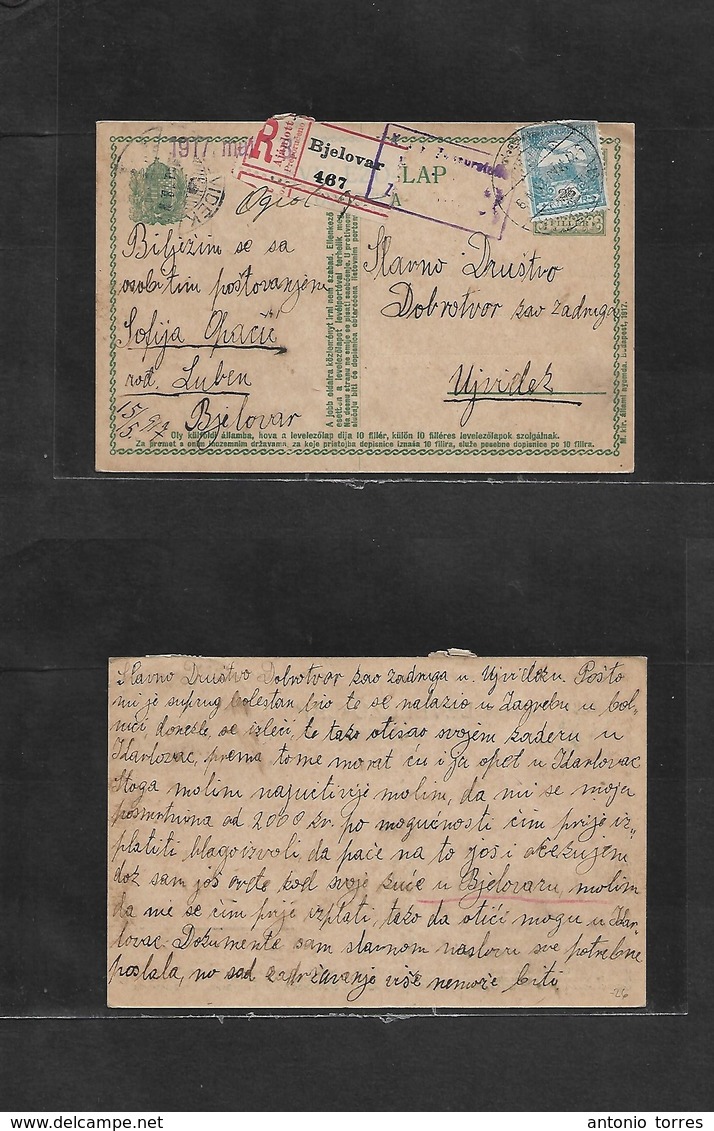 1917
R
Ajánlott
Preporučeno
Bjelovar
467
LAP
VIDEK
25
FILLÉR
Bilježim se sa
osobitim poštovanjem
Sofija Opačić
rođ. Luben
Bjelovar
15/5 917
Slavno Društvo
Dobrotvor kao zadruga
Ujvidek
A jobb oldalra közleményt irni nem szabad. Ellenkező
esetben a levelezőlapot levélportóval terhelik meg.
Na desnu stranu ne smije se pisati saobćenje. U protivnom
slučaju biti će dopisnica obterećena listovnim portom
Oly külföldi államba, hova a levelezőlap díja 10 fillér, külön 10 filléres levelezőlapok szolgálnak.
Za promet s onim inozemnim državama, za koje pristojba dopisnice iznaša 10 filira, služe posebne dopisnice po 10 filira.
M. kir. állami nyomda. Budapest, 1917.
Slavno Društvo Dobrotvor kao zadruga u Ujvideku. Pošto
mi je suprug bolestan bio te se nalazio u Zagrebu u bol-
nici, donekle se izleči, te tako otišao svojem kaderu u
Karlovac, prema tome morat ću i ja opet u Karlovac
Stoga molim najuctivije molim, da mi se moja
posmrtnina od 2000 kr. po mogućnosti čim prije iz-
platiti blagoizvoli da pače na to još i očekujem
dok sam još ovde kod svoje kuće u Bjelovaru, molim
da mi se čim prije izplati, tako da otići mogu u Kar-
lovac. Dokumente sam slavnom naslovu sve potrebne
poslala, no sad zadržavanje više nemože biti
antonio torres